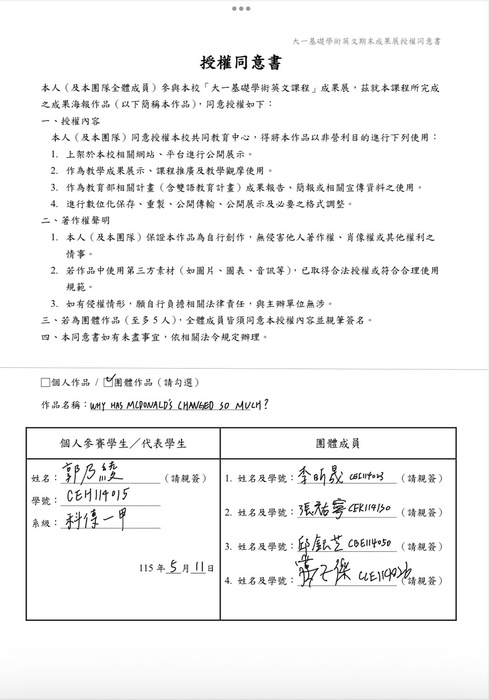 大一基礎學術英文期末成果展授權同意書
授權同意書
本人（及本團隊全體成員）參與本校「大一基礎學術英文課程」成果展，茲就本課程所完成
之成果海報作品（以下簡稱本作品），同意授權如下：
一、授權內容
本人（及本團隊）同意授權本校共同教育中心，得將本作品以非營利目的進行下列使用：
1. 上架於本校相關網站、平台進行公開展示。
2. 作為教學成果展示、課程推廣及教學觀摩使用。
3. 作為教育部相關計畫（含雙語教育計畫）成果報告、簡報或相關宣傳資料之使用。
4. 進行數位化保存、重製、公開傳輸、公開展示及必要之格式調整。
二、著作權聲明
1. 本人（及本團隊）保證本作品為自行創作，無侵害他人著作權、肖像權或其他權利之
情事。
2. 若作品中使用第三方素材（如圖片、圖表、音訊等），已取得合法授權或符合合理使用
規範。
3. 如有侵權情形，願自行負擔相關法律責任，與主辦單位無涉。
三、若為團體作品（至多 5 人），全體成員皆須同意本授權內容並親筆簽名。
四、本同意書如有未盡事宜，依相關法令規定辦理。
□個人作品 / ☑團體作品（請勾選）
作品名稱：WHY HAS MCDONALD'S CHANGED SO MUCH?
個人參賽學生／代表學生
姓名：郭乃綾（請親簽）
學號：CEH114015
系級：科傳一甲
115 年 5 月 11 日
團體成員
1. 姓名及學號：李昕晟（請親簽）
2. 姓名及學號：張祐寧 CFK114130（請親簽）
3. 姓名及學號：邱鈺芝 CBE114050（請親簽）
4. 姓名及學號：（請親簽）